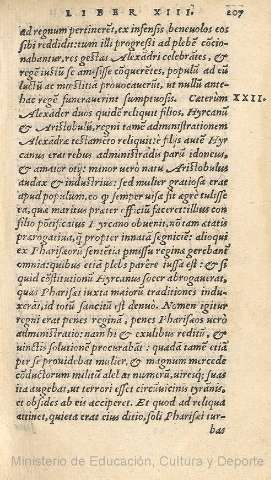 LIBER XIII. 207
ad regnum pertinerẽt, ex infensis beneuolos eos
sibi reddidit: tum illi progressi ad plebẽ cõcio-
nabantur, res gestas Alexãdri celebrãtes, &
regẽ iustũ se amisisse cõquerẽtes, populũ ad eũ
luctũ ac mœstitiã prouocauerũt, ut nulli ante-
hac regẽ funerauerint sumptuosiùs. Cæterum XXII.
Alexãder duos quidẽ reliquit filios, Hyrcanũ
& Aristobulũ, regni tamẽ administrationem
Alexãdræ testamẽto reliquit: è filijs autẽ Hy
rcanus erat rebus administrãdis parũ idoneus,
& amator otij: minor uerò natu Aristobulus
audax & industrius: sed mulier gratiosa erat
apud populum, eo q̃ semper uisa sit ægrè tulisse
ea, quæ maritus præter officiũ faceret: illius con
silio põtificatus Hyrcano obuenit, nõ tam ætatis
prærogatiua, q̃ propter innatã segniciẽ: alioqui
ex Pharisæorũ sentẽtia ꝑmissu regina gerebant̃
omnia: quibus etiã plebs parere iussa est: & si
quid cõstitutionũ Hyrcanus socer abrogauerat,
quas Pharisæi iuxta maiorũ traditiones indu-
xerãt, id totũ sanciuit est denuo. Nomen igitur
regni erat penes reginã, penes Pharisæos uerò
administratio: nam hi & exulibus reditũ, &
uinctis solutionẽ procurabãt: quædã tamẽ etiã
per se prouidebat mulier, & magnum mercede
cõductorum militũ alebat numerũ, uiresq; suas
ita augebat, ut terrori esset circũuicinis tyrannis,
et obsides ab eis acciperet. Et quod ad reliqua
attinet, quieta erat eius ditio, soli Pharisæi tur-
bas
Ministerio de Educación, Cultura y Deporte